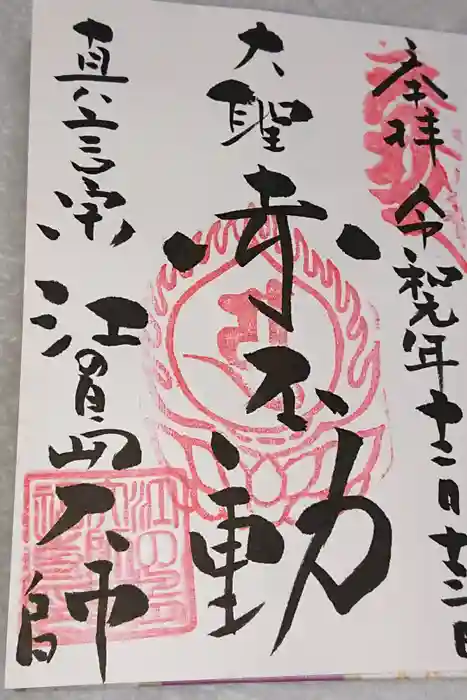 奉拝 令和元年十二月十三日
大聖
赤不動
真言宗 江の島大師